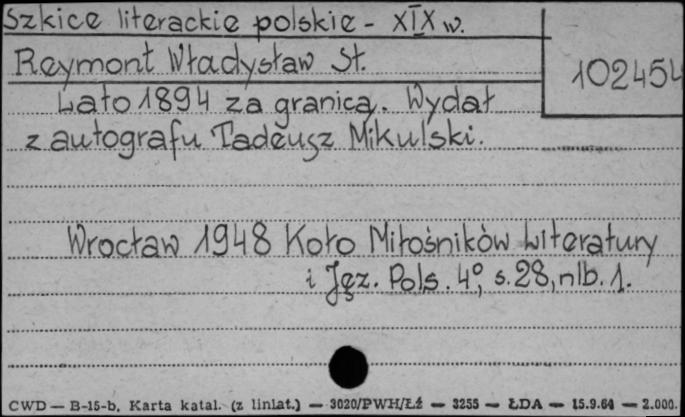 Szkice literackie polskie - XIX w.
Reymont Władysław St.
102454
Lato 1894 za granicą. Wydał
z autografu Tadeusz Mikulski.
Wrocław 1948 Koło Miłośników Literatury
i Jęz. Pols. 4°, s. 28, nlb. 1.
CWD — B-15-b. Karta katal. (z liniat.) — 3020/PWH/Łź — 3255 — ŁDA — 15.9.64 — 2.000.